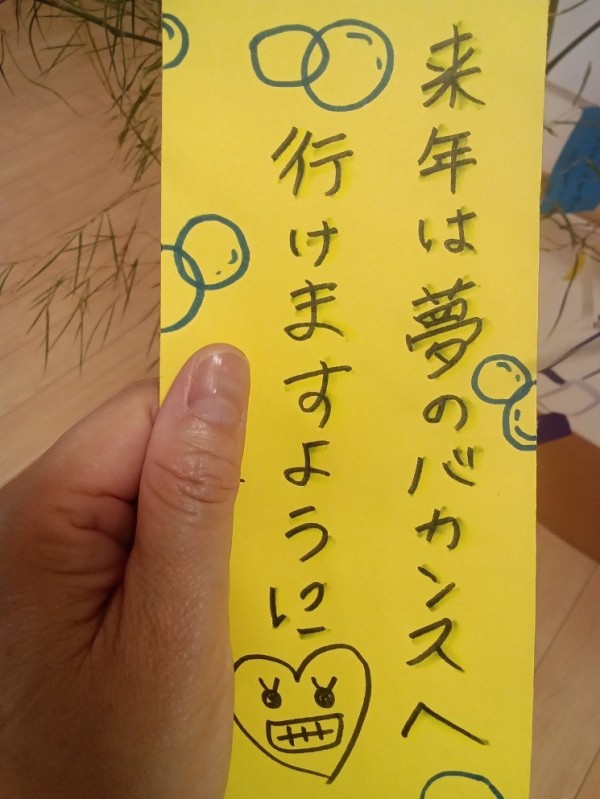 来年は夢のバカンスへ
行けますように